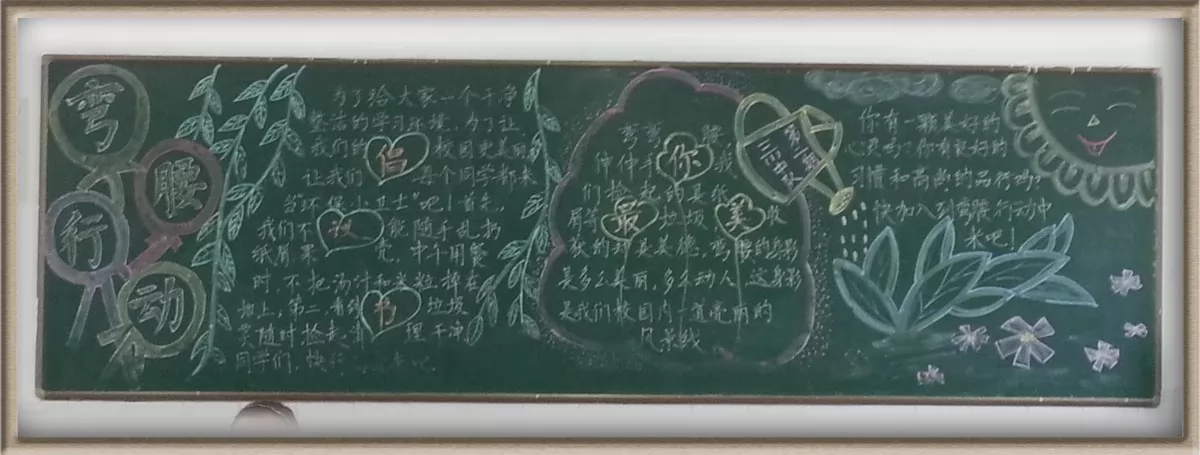 弯
腰
行
动
为了给大家一个干净
整洁的学习环境,为了让
我们的 校园更美丽
让我们 每个同学都来
当"环保小卫士"吧!首先,
我们不 能随手乱扔
纸屑果 壳,中午用餐
时,不把汤汁和米粒掉在
地上,第二,看到 垃圾
要随时捡起 理干净
同学们,快行
倡
议
书
弯弯 腰
伸伸手 我
们捡起的是纸
屑 垃圾, 收
获的 是美德,弯腰的身影
是多么美丽,多么动人,这身影
是我们校园内一道亮丽的
风景线
你
最
美
三
班
你有一颗美好的
心灵吗?你有良好的
习惯和高尚的品行吗?
快加入到弯腰行动中
来吧!